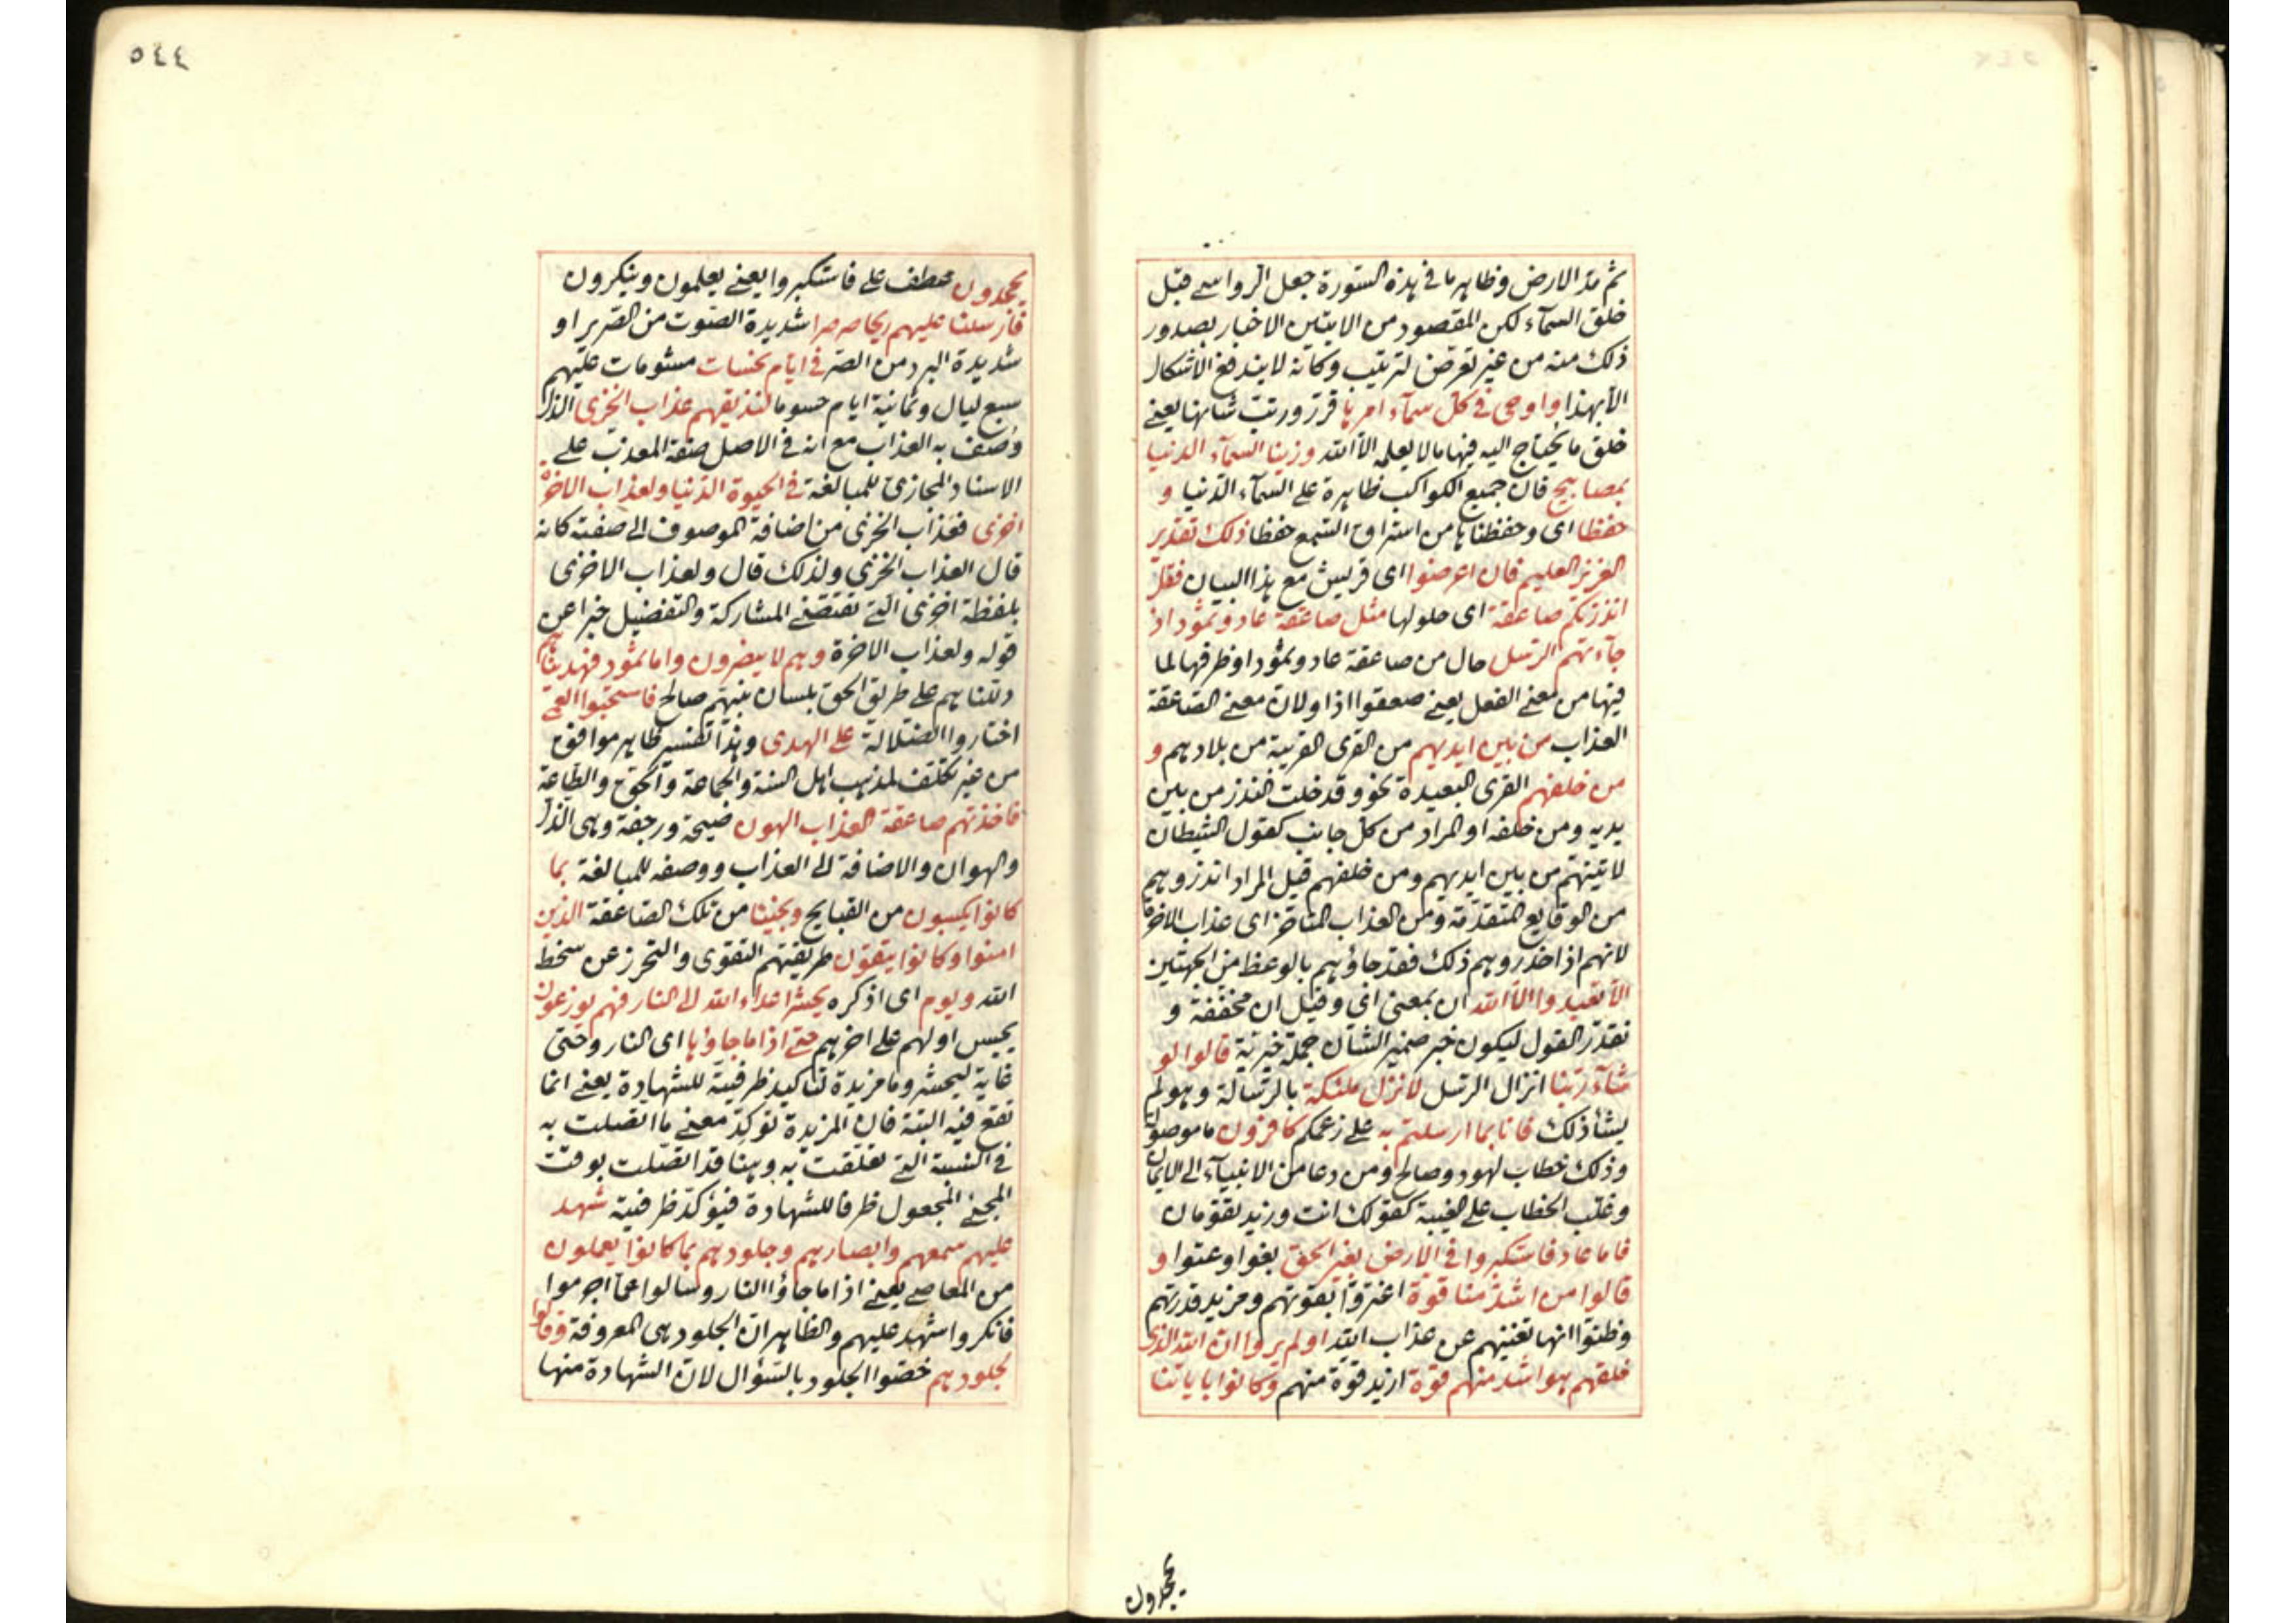 ثم مد الارض وظاهر ما فى هذه السورة جعل الرواسے قبل
خلق السمآء لكن المقصود من الايتين الاخبار بصدور
ذلك منه من غير تعرض لترتيب وكانه لا يندفع الاشكال
الا بهذا واوحى فى كل سمآء امرها قرر ورتب شانها يعنے
خلق ما يحتاج اليه فيها ما لا يعلمه الا الله وزينا السمآء الدنيا
بمصابيح فان جميع الكواكب ظاهرة على السمآء الدنيا و
حفظا اى وحفظناها من استراق السمع حفظا ذلك تقدير
العزيز العليم فان اعرضوا اى قريش مع هذا البيان فقل
انذرتكم صاعقة اى حلولها مثل صاعقة عاد وثمود اذ
جآءتهم الرسل حال من صاعقة عاد وثمود او ظرفها لما
فيها من معنے الفعل يعنے صعقوا اذا ولان معنے الصاعقة
العذاب من بين ايديهم من القرى القريبة من بلادهم و
من خلفهم القرى البعيدة نحو وقد خلت النذر من بين
يديه ومن خلفه او المراد من كل جانب كقول الشيطان
لاتينهم من بين ايديهم ومن خلفهم قيل المراد انذروهم
من الوقايع المتقدمة ومن العذاب المتاخر اى عذاب الاخرة
لانهم اذا حذروهم ذلك فقد جاؤهم بالوعظ من الجهتين
الا تعبدوا الا الله ان بمعنى اى وقيل ان مخففة و
تقدر القول ليكون خبر ضمير الشان جملة خبرية قالوا لو
شآء ربنا انزال الرسل لانزل ملئكة بالرسالة وهو لم
يشأ ذلك فانا بما ارسلتم به على زعمكم كافرون ما موصولة
وذلك خطاب لهود وصالح ومن دعا من الانبيآء الى الايمان
وغلب الخطاب على الغيبة كقولك انت وزيد تقومان
فاما عاد فاستكبروا فى الارض بغير الحق بغوا وعتوا و
قالوا من اشد منا قوة اغتروا بقوتهم ومزيد قدرتهم
وظنوا انها تغنيهم عن عذاب الله اولم يروا ان الله الذى
خلقهم هو اشد منهم قوة ازيد قوة منهم وكانوا باياتنا
يجحدون
٥٤٤
يجحدون عطف على فاستكبروا يعنے يعلمون وينكرون
فارسلنا عليهم ريحا صرصرا شديدة الصوت من الصرير او
شديدة البرد من الصر فى ايام نحسات مشومات عليهم
سبع ليال وثمانية ايام حسوما لنذيقهم عذاب الخزى الذل
وصف به العذاب مع انه فى الاصل صفة المعذب على
الاسناد المجازى للمبالغة فى الحيوة الدنيا ولعذاب الاخرة
اخزى فعذاب الخزى من اضافة الموصوف الى صفته كانه
قال العذاب الخزى ولذلك قال ولعذاب الاخزى
بلفظة اخزى التے تقتضے المشاركة والتفضيل خبرا عن
قوله ولعذاب الاخرة وهم لا ينصرون واما ثمود فهديناهم
دللناهم على طريق الحق بلسان نبيهم صالح فاستحبوا العمى
اختاروا الضلالة على الهدى وهذا تفسير ظاهر موافق
من غير تكلف لمذهب اهل السنة والجماعة والحق والطاعة
فاخذتهم صاعقة العذاب الهون صيحة ورجفة وهى الذل
والهوان والاضافة الى العذاب ووصفه للمبالغة بما
كانوا يكسبون من القبايح ونجينا من تلك الصاعقة الذين
امنوا وكانوا يتقون طريقتهم التقوى والتحرز عن سخط
الله ويوم اى اذكره يحشر اعداء الله الى النار فهم يوزعون
يحبس اولهم على اخرهم حتے اذا ما جاؤها اى النار وحتى
غاية ليحشر وما مزيدة لتاكيد ظرفية للشهادة يعنے انما
تقع فيه البتة فان المزيدة توكد معنے ما اتصلت به
فى النسبة التے تعلقت به وههنا قد اتصلت بوقت
المجئ المجعول ظرفا للشهادة فيؤكد ظرفية شهد
عليهم سمعهم وابصارهم وجلودهم بما كانوا يعملون
من المعاصے يعنے اذا ما جاؤا النار وسالوا عما اجرموا
فانكروا شهد عليهم والظاهر ان الجلود هى المعروفة وقالوا
لجلودهم خصوا الجلود بالسؤال لان الشهادة منها